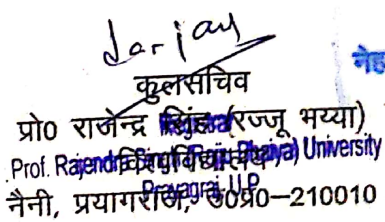 कुलसचिव
प्रो० राजेन्द्र सिंह (रज्जू भय्या)
Prof. Rajendra Singh (Rajju Bhaiya) University
विश्वविद्यालय
Prayagraj, U.P.
नैनी, प्रयागराज, उ०प्र०–210010